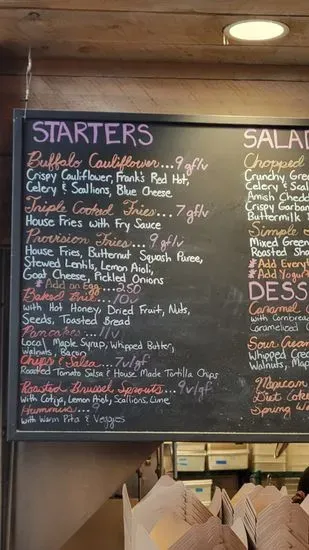 STARTERS
Buffalo Cauliflower... 9 gf/v
Crispy Cauliflower, Frank's Red Hot,
Celery & Scallions, Blue Cheese
Triple Cooked Fries... 7 gf/v
House Fries with Fry Sauce
Provision Fries... 9 gf/v
House Fries, Butternut Squash Puree,
Stewed Lentils, Lemon Aioli,
Goat Cheese, Pickled Onions
* Add an Egg... 2.50
Baked Brie... 10 v
with Hot Honey, Dried Fruit, Nuts,
Seeds, Toasted Bread
Pancakes... 11 v
Local Maple Syrup, Whipped Butter,
Walnuts, Bacon
Chips & Salsa... 7 v/gf
Roasted Tomato Salsa & House Made Tortilla Chips
Roasted Brussel Sprouts... 9 v/gf
with Cotija, Lemon Aioli, Scallions, Lime
Hummus... 9
with Warm Pita & Veggies
SALAD
Chopped
Crunchy Gree
Celery & Scal
Amish Chedd
Crispy Garban
Buttermilk
Simple
Mixed Green
Roasted Sha
* Add Every
* Add Yogur
DESS
Caramel
with Cornbrea
Caramelized
Sour Cream
Whipped Crea
Walnuts, Map
Mexican
Diet Coke
Spring Wa